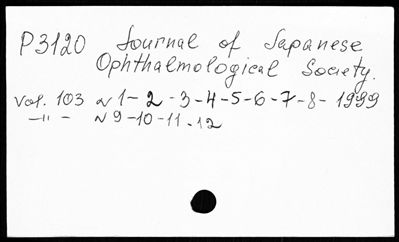 P3120 Journal of Japanese
Ophthalmological Society.
Vol. 103 N 1-2-3-4-5-6-7-8- 1999
-"- N 9-10-11-12